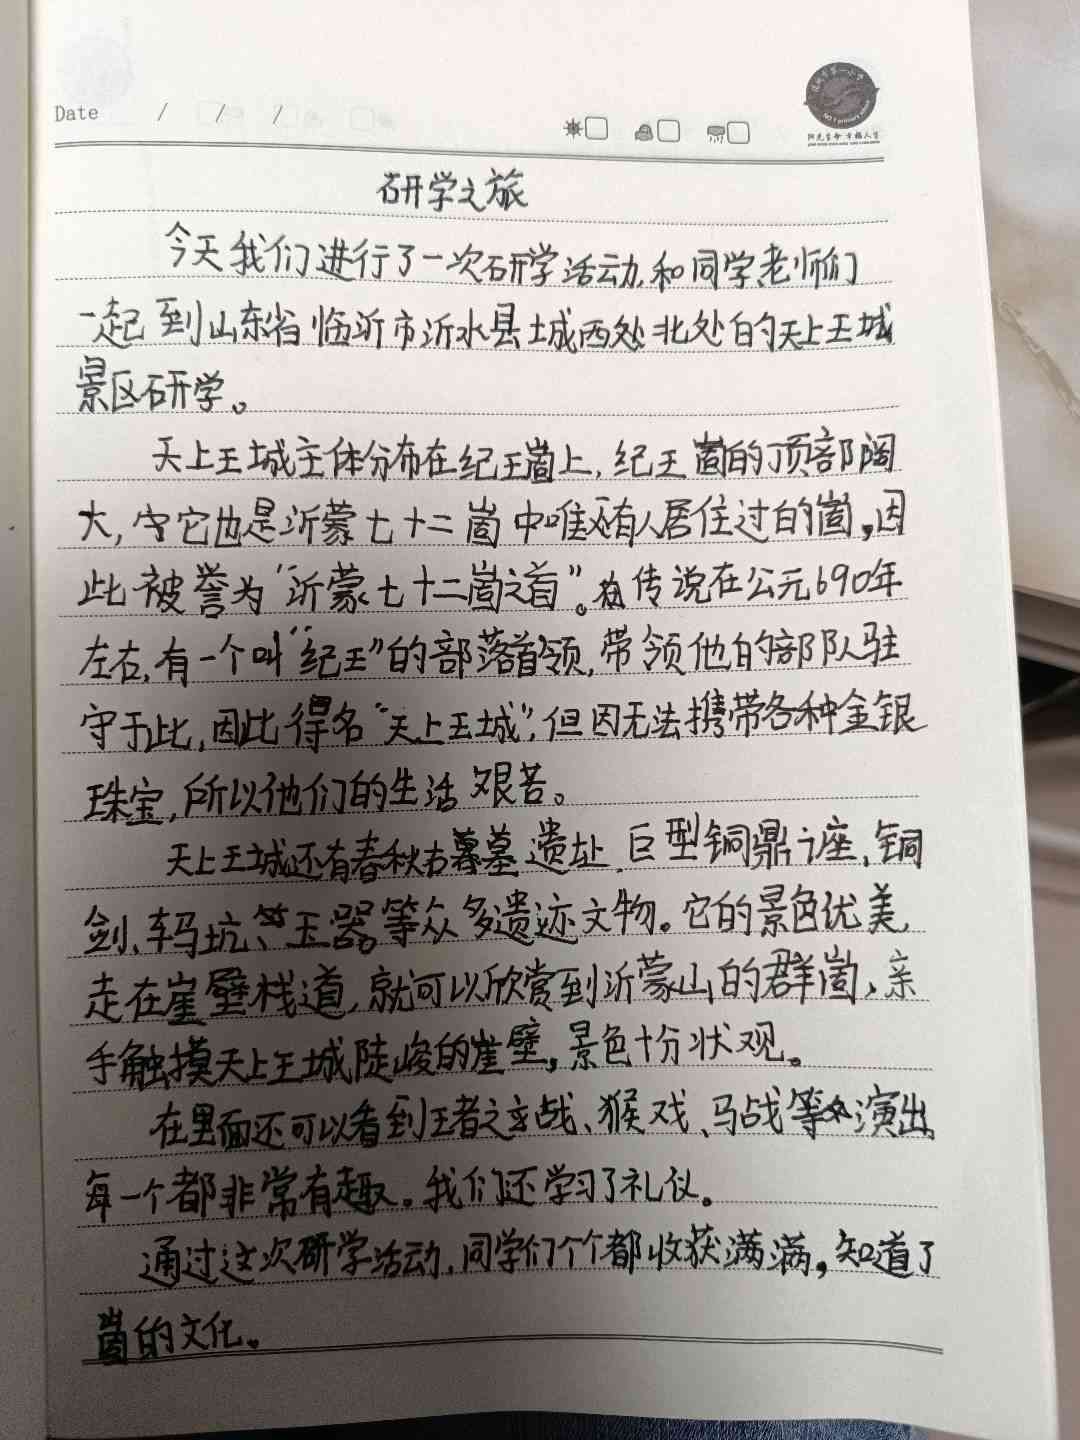 Date / / /
阳光生命 幸福人生
研学之旅
今天我们进行了一次研学活动,和同学老师们
一起到山东省临沂市沂水县城西处北处的天上王城
景区研学。
天上王城主体分布在纪王崮上,纪王崮的顶部阔
大,它也是沂蒙七十二崮中唯一有人居住过的崮,因
此被誉为“沂蒙七十二崮之首”。传说在公元690年
左右,有一个叫“纪王”的部落首领,带领他的部队驻
守于此,因此得名“天上王城”,但因无法携带各种金银
珠宝,所以他们的生活艰苦。
天上王城还有春秋古墓遗址、巨型铜鼎座、铜
剑、车马坑、玉器等众多遗迹文物。它的景色优美,
走在崖壁栈道,就可以欣赏到沂蒙山的群崮、亲
手触摸天上王城陡峻的崖壁,景色十分状观。
在里面还可以看到王者之战、猴戏、马战等演出,
每一个都非常有趣。我们还学习了礼仪。
通过这次研学活动,同学们个个都收获满满,知道了
崮的文化。